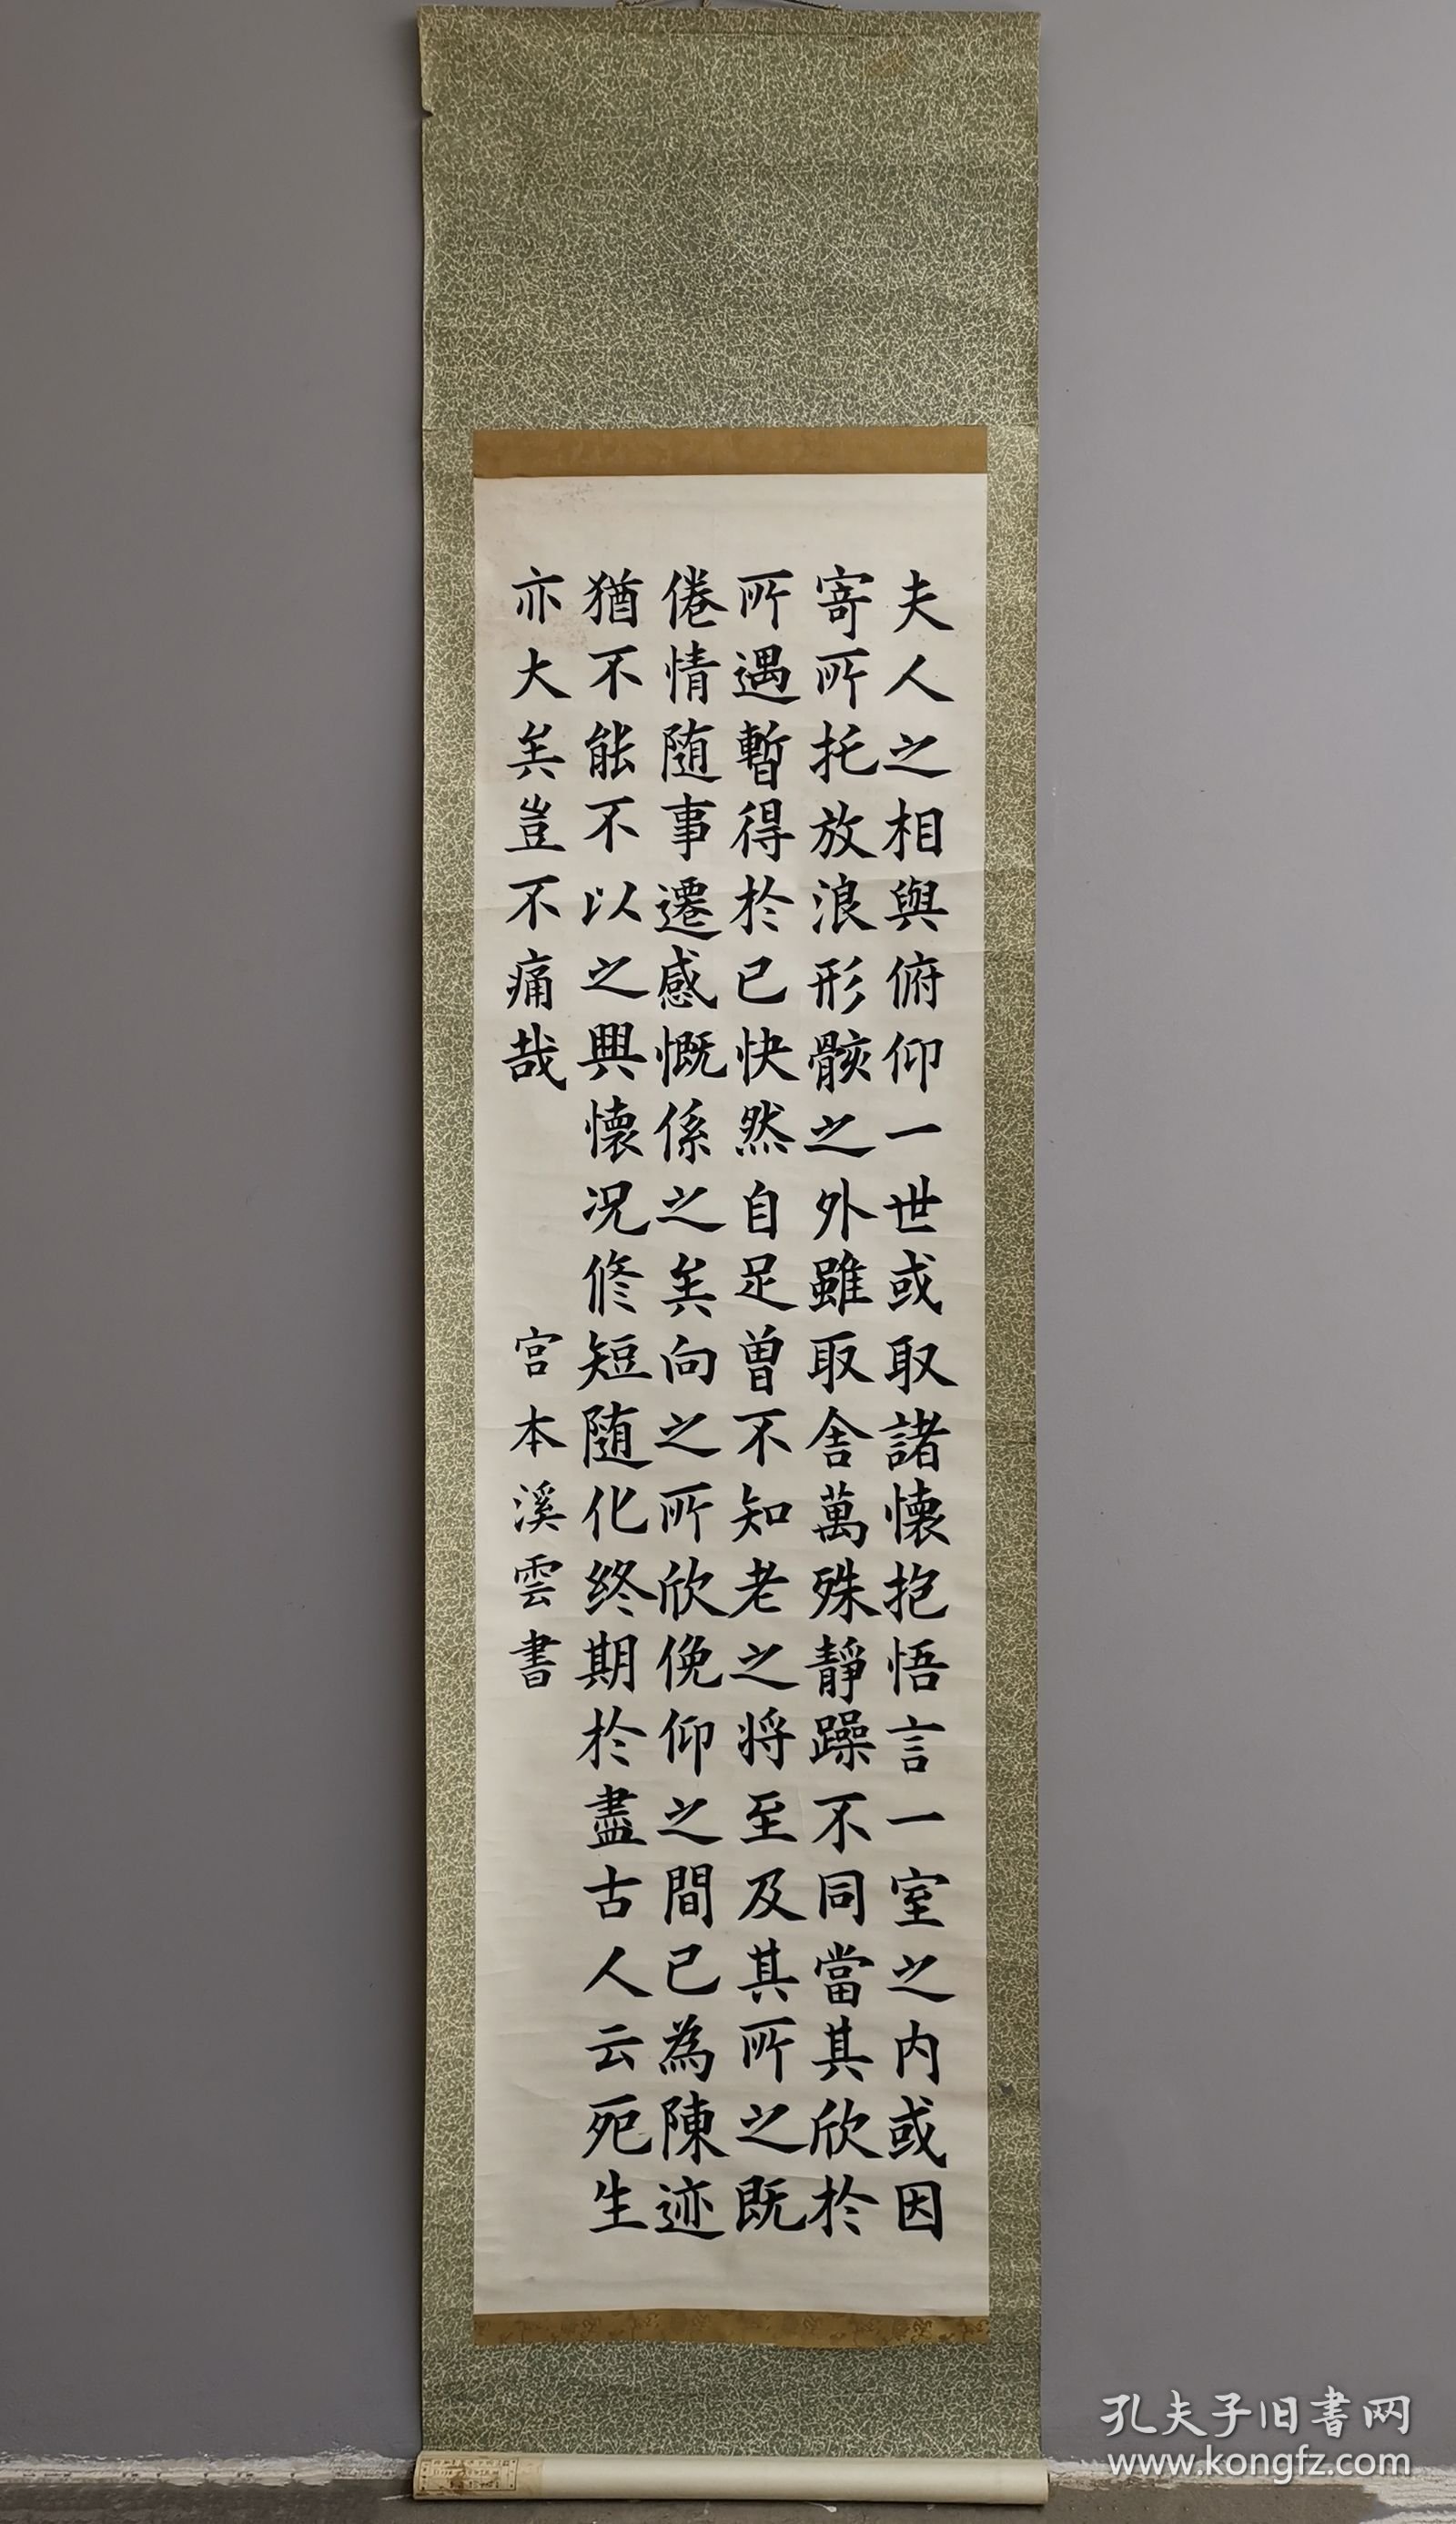 夫人之相與俯仰一世或取諸懐抱悟言一室之内或因
寄所托放浪形骸之外雖取舎萬殊静躁不同當其欣於
所遇暫得於己快然自足曽不知老之将至及其所之既
倦情随事遷感慨係之矣向之所欣俛仰之間已為陳迹
猶不能不以之興懐况脩短随化终期於盡古人云死生
亦大矣豈不痛哉
宮本溪雲書
孔夫子旧书网
www.kongfz.com